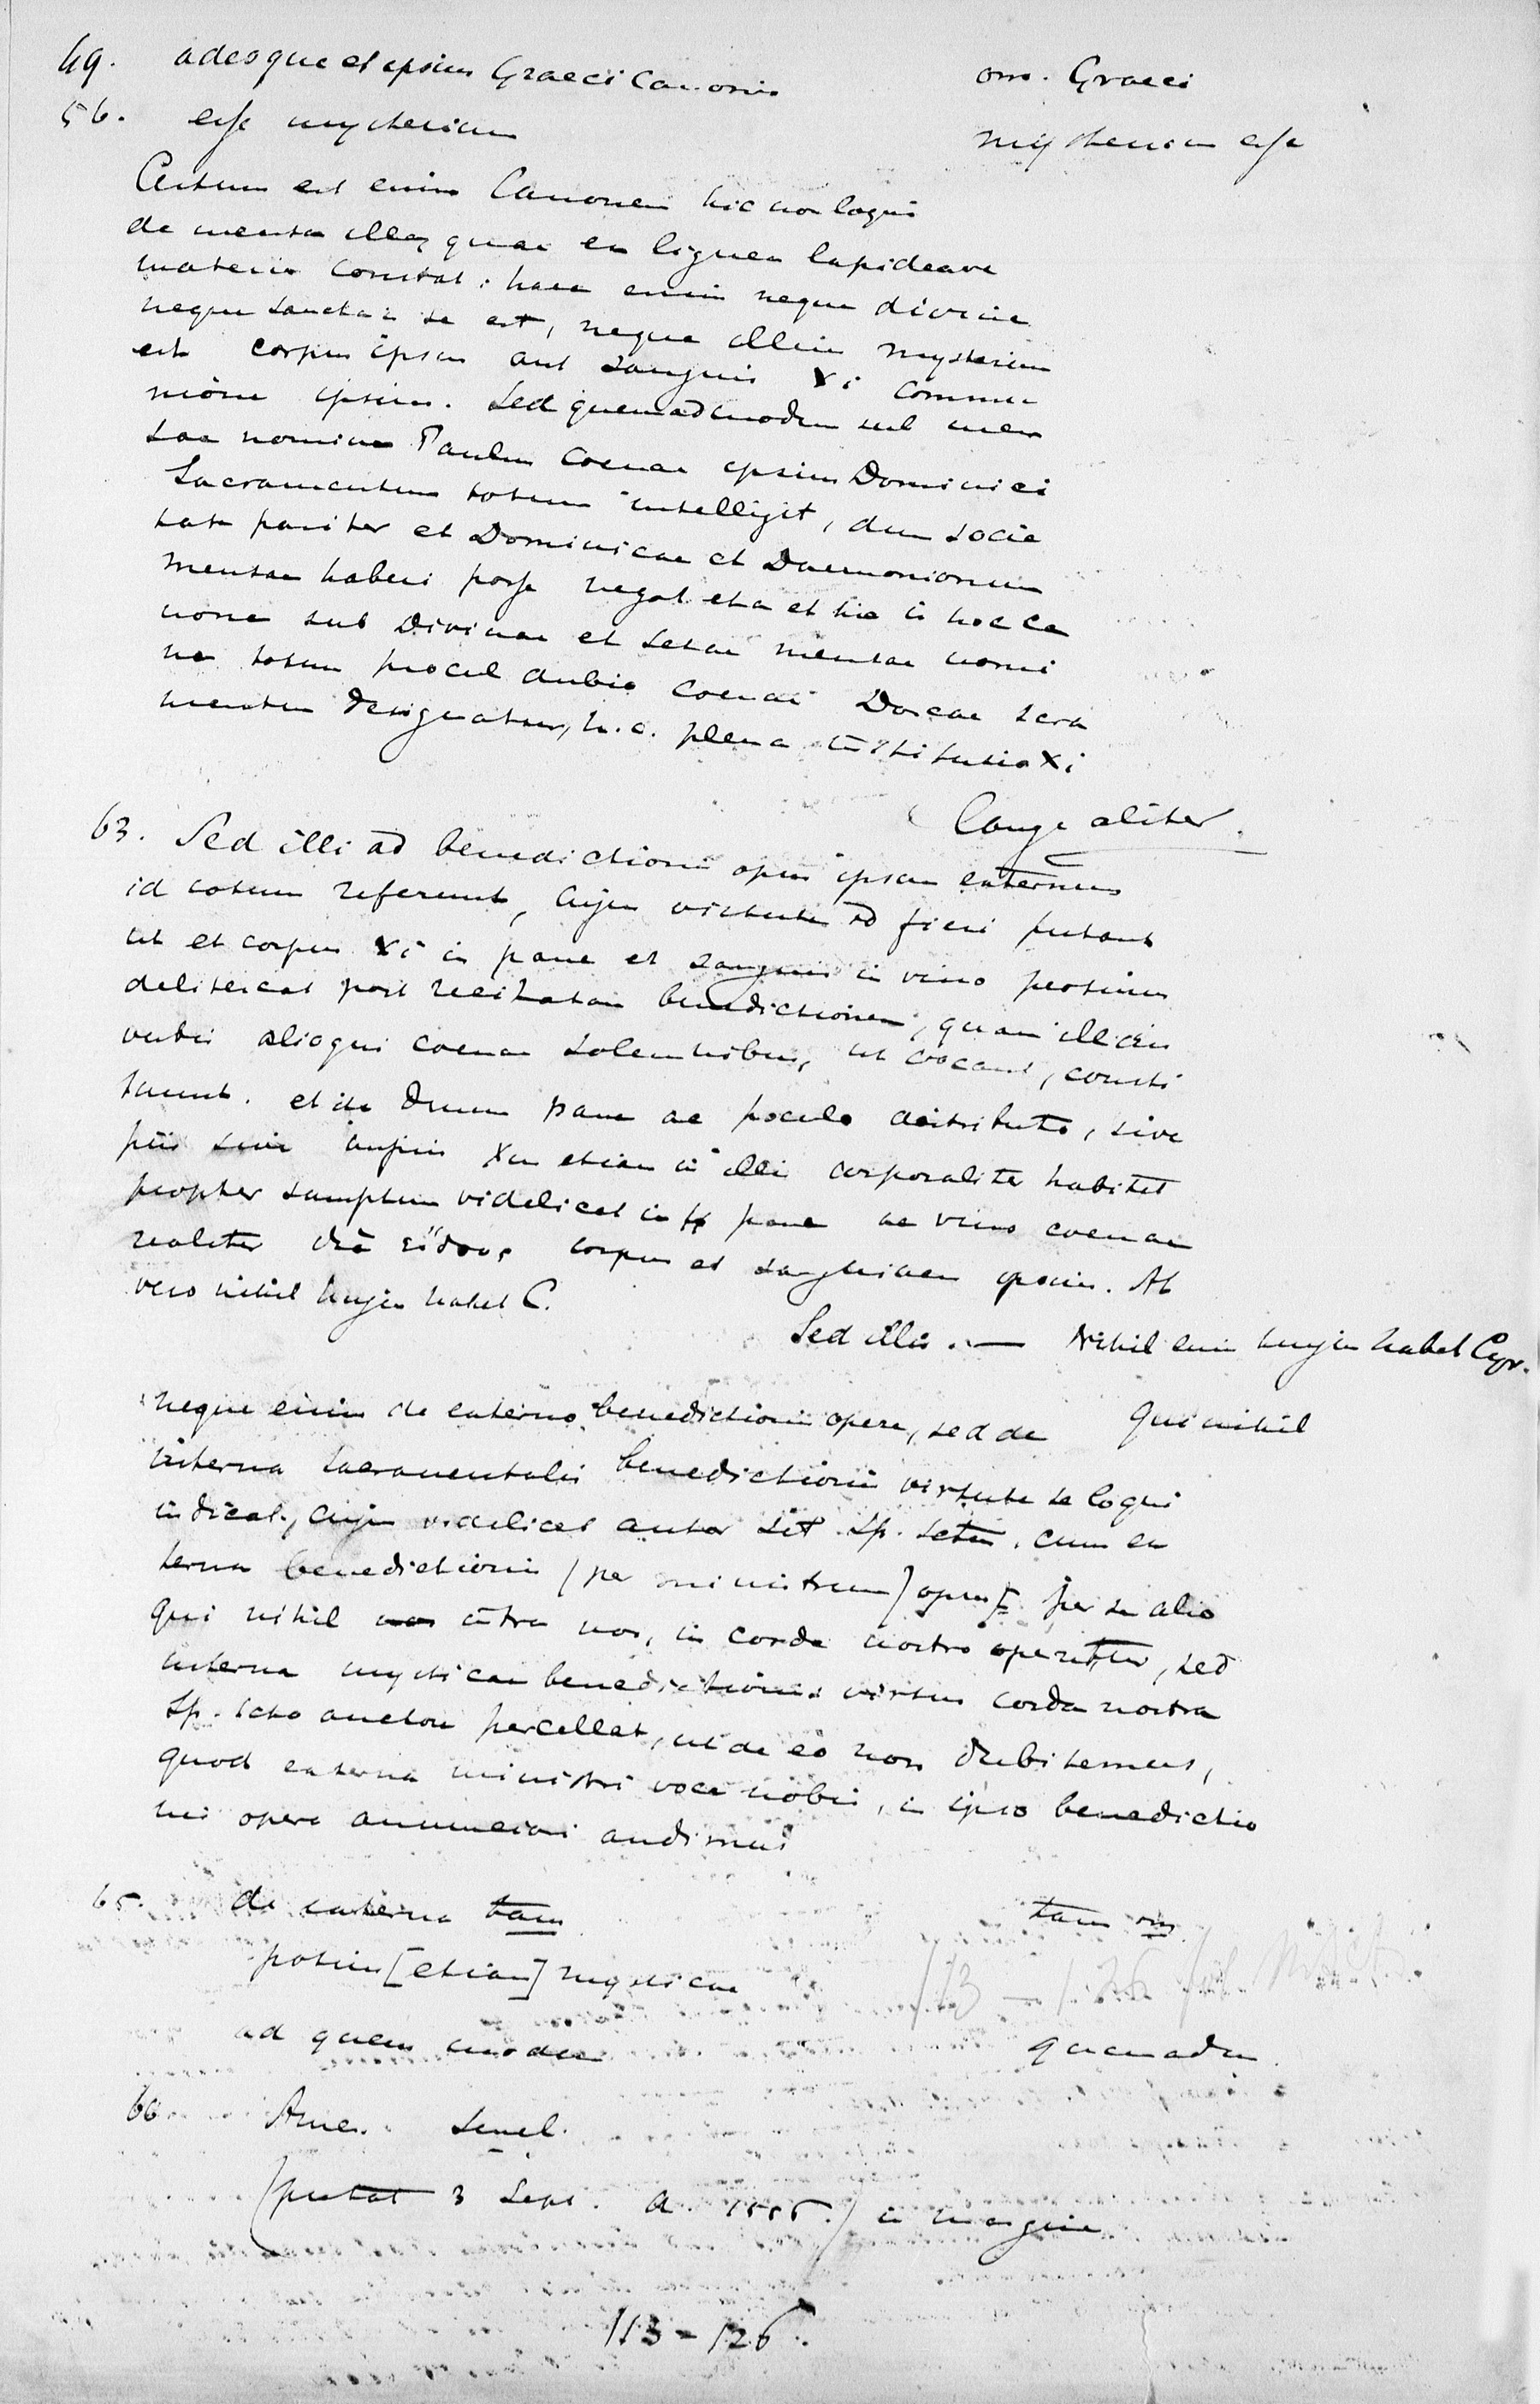 49. adeoque et ipsius Graeci Canonis om. Graeci
56. esse mysterium mysterium esse
Certum est enim Canonem hic non loqui
de mensa illa, quae ex lignea lapideave
materia constat: haec enim neque divina
neque sancta in se est, neque illius mysterium
est corpus ipsum aut sanguis Xi commu
nione ipsius. Sed quemadmodum sub men
sae nomine Paulus Coenae ipsius Dominici
Sacramentum totum intelligit, dum socie
tatem pariter et Dominicae et Daemoniorum
mensae haberi posse negat ita et hic in hoc ca
none sub Divinae et sctae mensae nomi
ne totum procul dubio coenae Dncae scra
mentum designatur, h. e. plena institutio Xi
Longe aliter.
63. Sed illi ad benedictionis opus ipsum externum
id totum referunt, cujus virtute id fieri putant
ut et corpus Xi in pane et sanguis in vino protinus
delitescat post recitatam benedictionem, quam illi in
verbis alioqui coenae solemnibus, ut vocant, consti
tuunt. et ita dum pane ac poculo distributo, sive
piis sive impiis Xm etiam in illis corporaliter habitet
propter sumptum videlicet in pane ac vino coenae
realiter διὰ εἴδους corpus et sanguinem ipsius. At
vero nihil hujus habet C.
Sed illis. — Nihil enim hujus habet Cyr.
neque enim de externo benedictionis opere, sed de qui nihil
interna sacramentalis benedictionis virtute se loqui
indicat, cujus videlicet autor sit Sp. sctus. cum ex
terna benedictionis (per ministrum) opus per se alio
qui nihil intra nos, in corde nostro operetur, sed
interna mysticae benedictionis virtus corda nostra
Sp. scto auctore percellat, ut de eo non dubitemus,
quod externa ministri voce nobis, in ipso benedictio
nis opere annunciari audimus
65. de externa tam tam om.
potius [etiam] mysticae
ad quem modum quemadm.
66 Amen. semel.
(putat 3 Sept. a. 1556.) in margine
113-126.